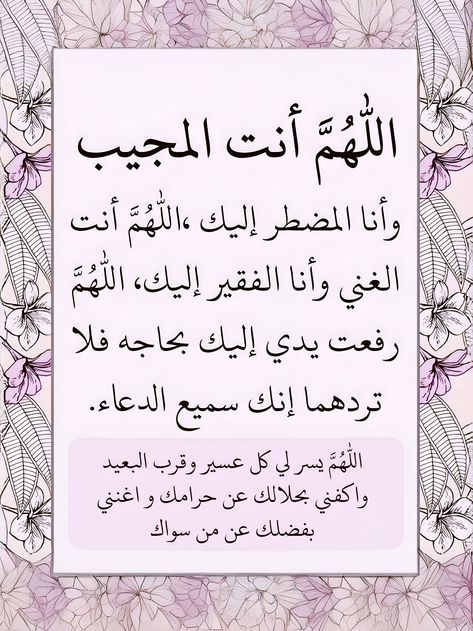 اللهُمَّ أنت المجيب
وأنا المضطر إليك ،اللهُمَّ أنت
الغني وأنا الفقير إليك، اللهُمَّ
رفعت يدي إليك بحاجه فلا
تردهما إنك سميع الدعاء.
اللهُمَّ يسر لي كل عسير وقرب البعيد
واكفني بحلالك عن حرامك و اغنني
بفضلك عن من سواك